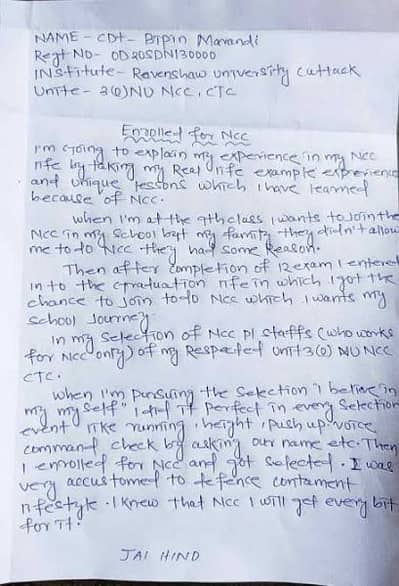 NAME - CDT - Bipin Marandi
Regt NO- OD20SDN130000
INStitute - Ravenshaw university cuttack
Unite - 3(O)NU NCC, CTC
Enrolled for NCC
I'm going to explain my experience in my NCC
life by taking my Real life example experience
and unique lessons which I have learned
because of NCC.
When I'm at the 9th class I wants to Join the
NCC in my School but my family they didn't allow
me to do NCC they had some Reason.
Then after completion of 12 exam I entered
in to the Graduation life in which I got the
chance to Join to do NCC which I wants my
School Journey.
In my Selection of NCC PI Staffs (who works
for NCC only) of my Respected Unit 3(O) NU NCC
CTC.
When I'm Pursuing the Selection "I belive in
my my self" I did it perfect in every Selection
event like running, height, push up, voice
command check by asking our name etc. Then
I enrolled for NCC and got Selected. I was
very accustomed to defence contament
lifestyle. I knew that NCC I will get every bit
for it.
JAI HIND